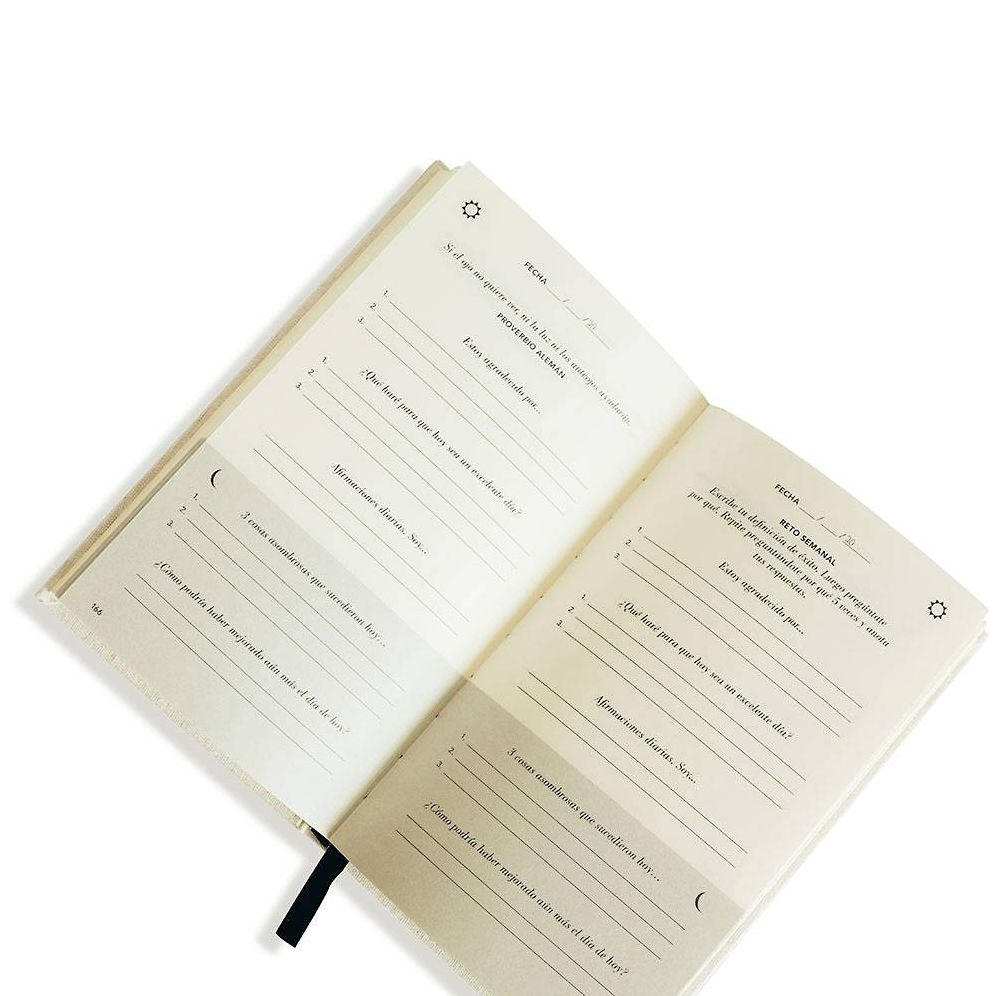 FECHA __/__/20__
Si el ojo no quiere ver, ni la luz ni los anteojos ayudarán.
PROVERBIO ALEMÁN
Estoy agradecido por...
1.
2.
3.
¿Qué haré para que hoy sea un excelente día?
1.
2.
3.
Afirmaciones diarias. Soy...
3 cosas asombrosas que sucedieron hoy...
1.
2.
3.
¿Cómo podría haber mejorado aún más el día de hoy?
166
FECHA __/__/20__
RETO SEMANAL
Escribe tu definición de éxito. Luego pregúntate
por qué. Repite preguntándote por qué 5 veces y anota
tus respuestas.
Estoy agradecido por...
1.
2.
3.
¿Qué haré para que hoy sea un excelente día?
1.
2.
3.
Afirmaciones diarias. Soy...
3 cosas asombrosas que sucedieron hoy...
1.
2.
3.
¿Cómo podría haber mejorado aún más el día de hoy?